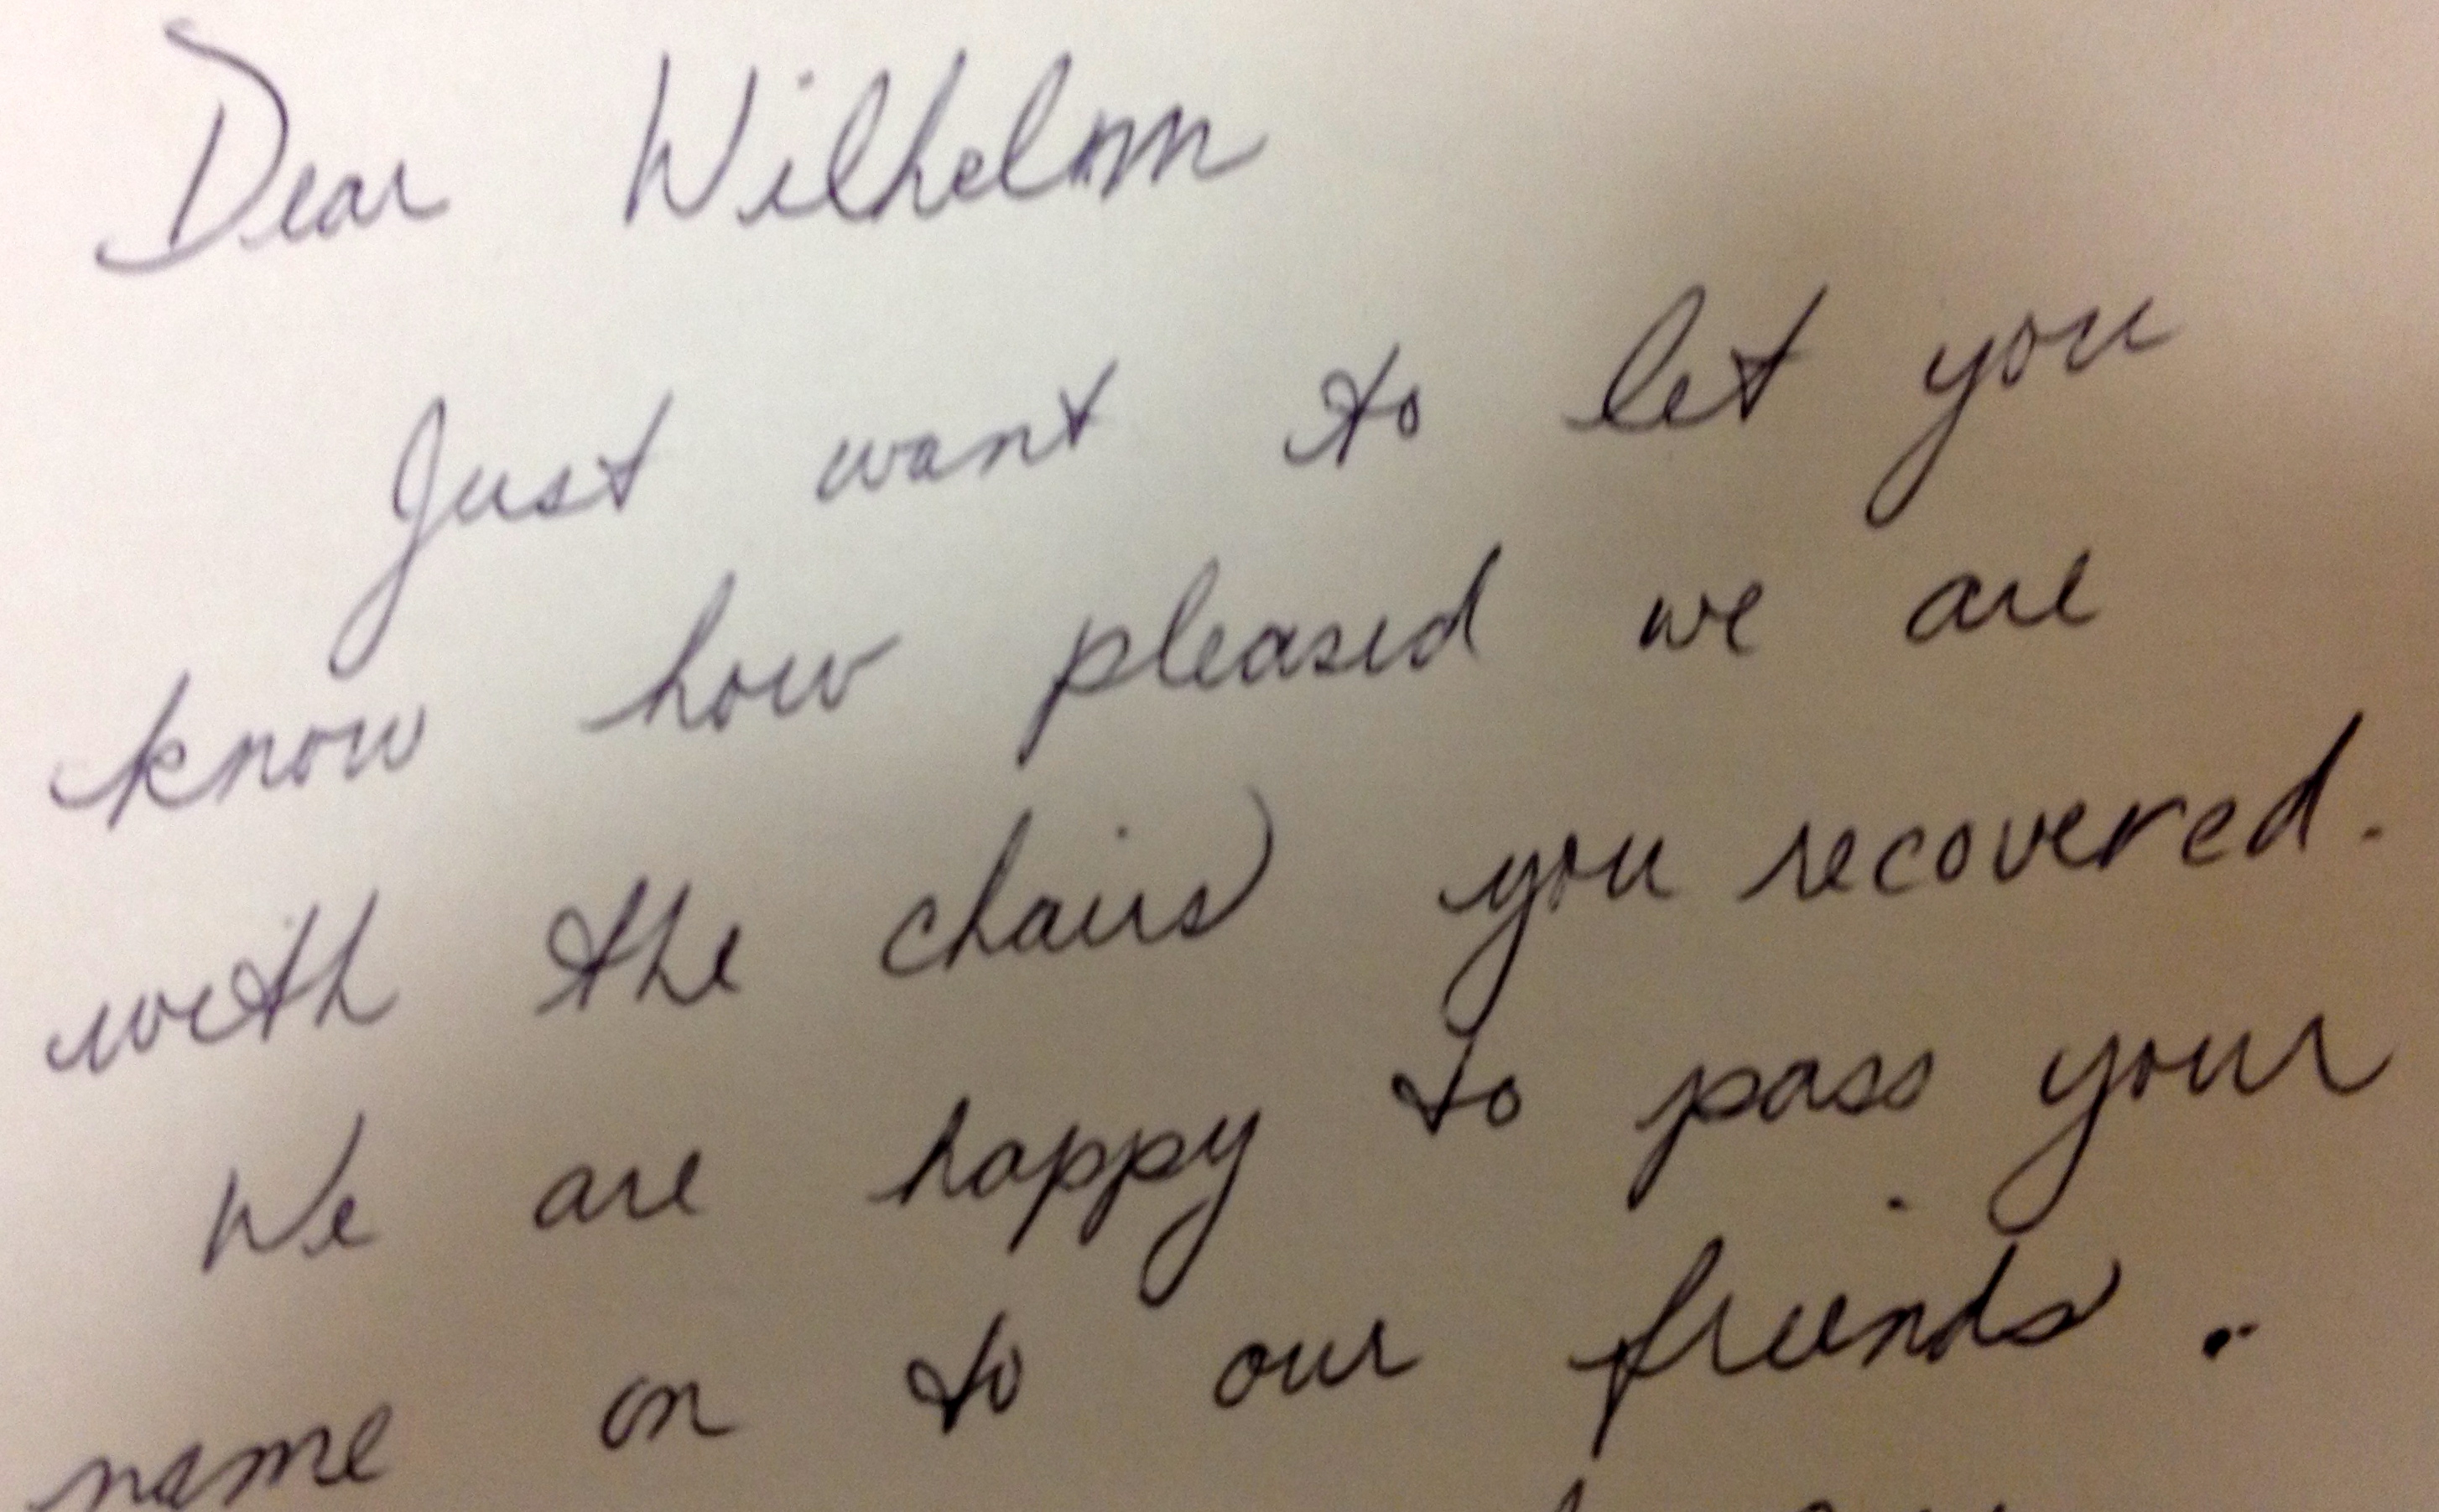 Dear Wilhelm
Just want to let you
know how pleased we are
with the chairs you recovered.
We are happy to pass your
name on to our friends.